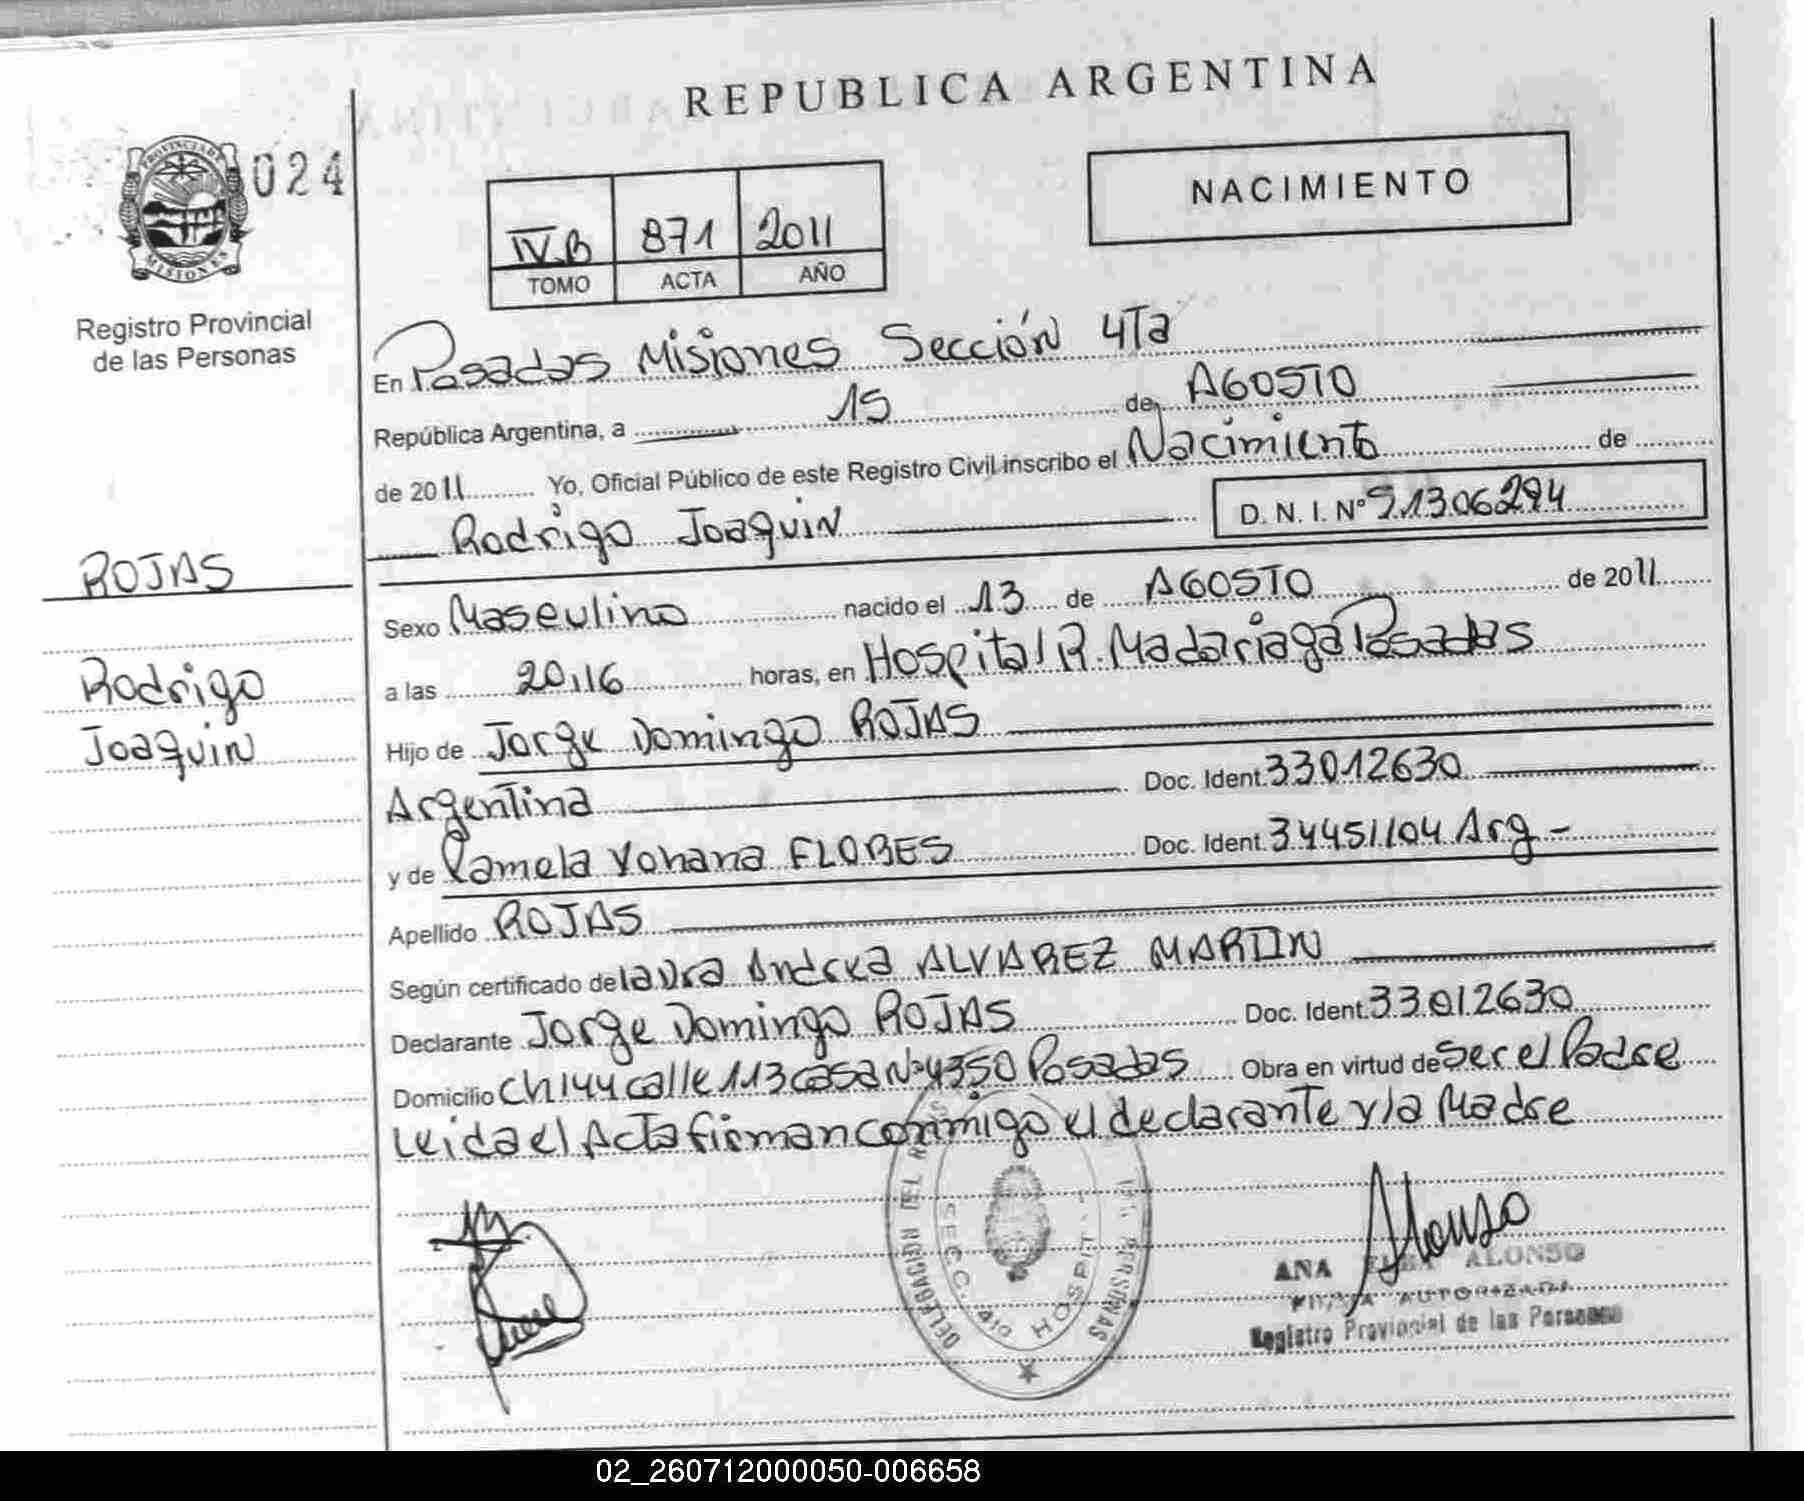 REPUBLICA ARGENTINA
PROVINCIA DE
MISIONES
024
NACIMIENTO
IV.B 871 2011
TOMO ACTA AÑO
Registro Provincial
de las Personas
En Posadas Misiones Sección 4Ta
República Argentina, a 15 de AGOSTO
de 2011 Yo, Oficial Público de este Registro Civil inscribo el Nacimiento de
Rodrigo Joaquin D. N. I. Nº 51306294
ROJAS
Rodrigo
Joaquin
Sexo Masculino nacido el 13 de AGOSTO de 2011
a las 20,16 horas, en Hospital R. Madariaga Posadas
Hijo de Jorge Domingo ROJAS
Argentina Doc. Ident. 33012630
y de Pamela Yohana FLORES Doc. Ident. 34451104 Arg -
Apellido ROJAS
Según certificado de Laura Andrea ALVAREZ MARTIN
Declarante Jorge Domingo ROJAS Doc. Ident. 33012630
Domicilio Ch 144 calle 113 casa Nº 4350 Posadas Obra en virtud de ser el Padre
Leida el Acta firman conmigo el declarante y la Madre
DELEGACION DEL
PERSONAS
SECC.
HOSPIT
Alonso
ANA ALONSO
AUTORIZADA
Registro Provincial de las Personas
02_260712000050-006658